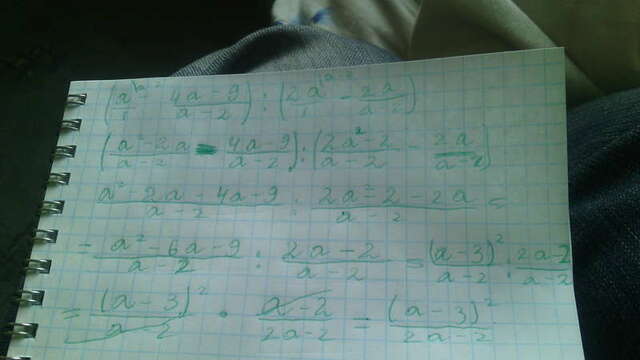 (a/1 - (4a-9)/(a-2)) : (2a/1 - 2a/(a-2))
((a²-2a)/(a-2) - (4a-9)/(a-2)) : ((2a²-2)/(a-2) - 2a/(a-2))
(a²-2a-4a-9)/(a-2) : (2a²-2-2a)/(a-2) =
= (a²-6a-9)/(a-2) : (2a-2)/(a-2) = (a-3)²/(a-2) : (2a-2)/(a-2)
= (a-3)²/(a-2) · (a-2)/(2a-2) = (a-3)²/(2a-2)